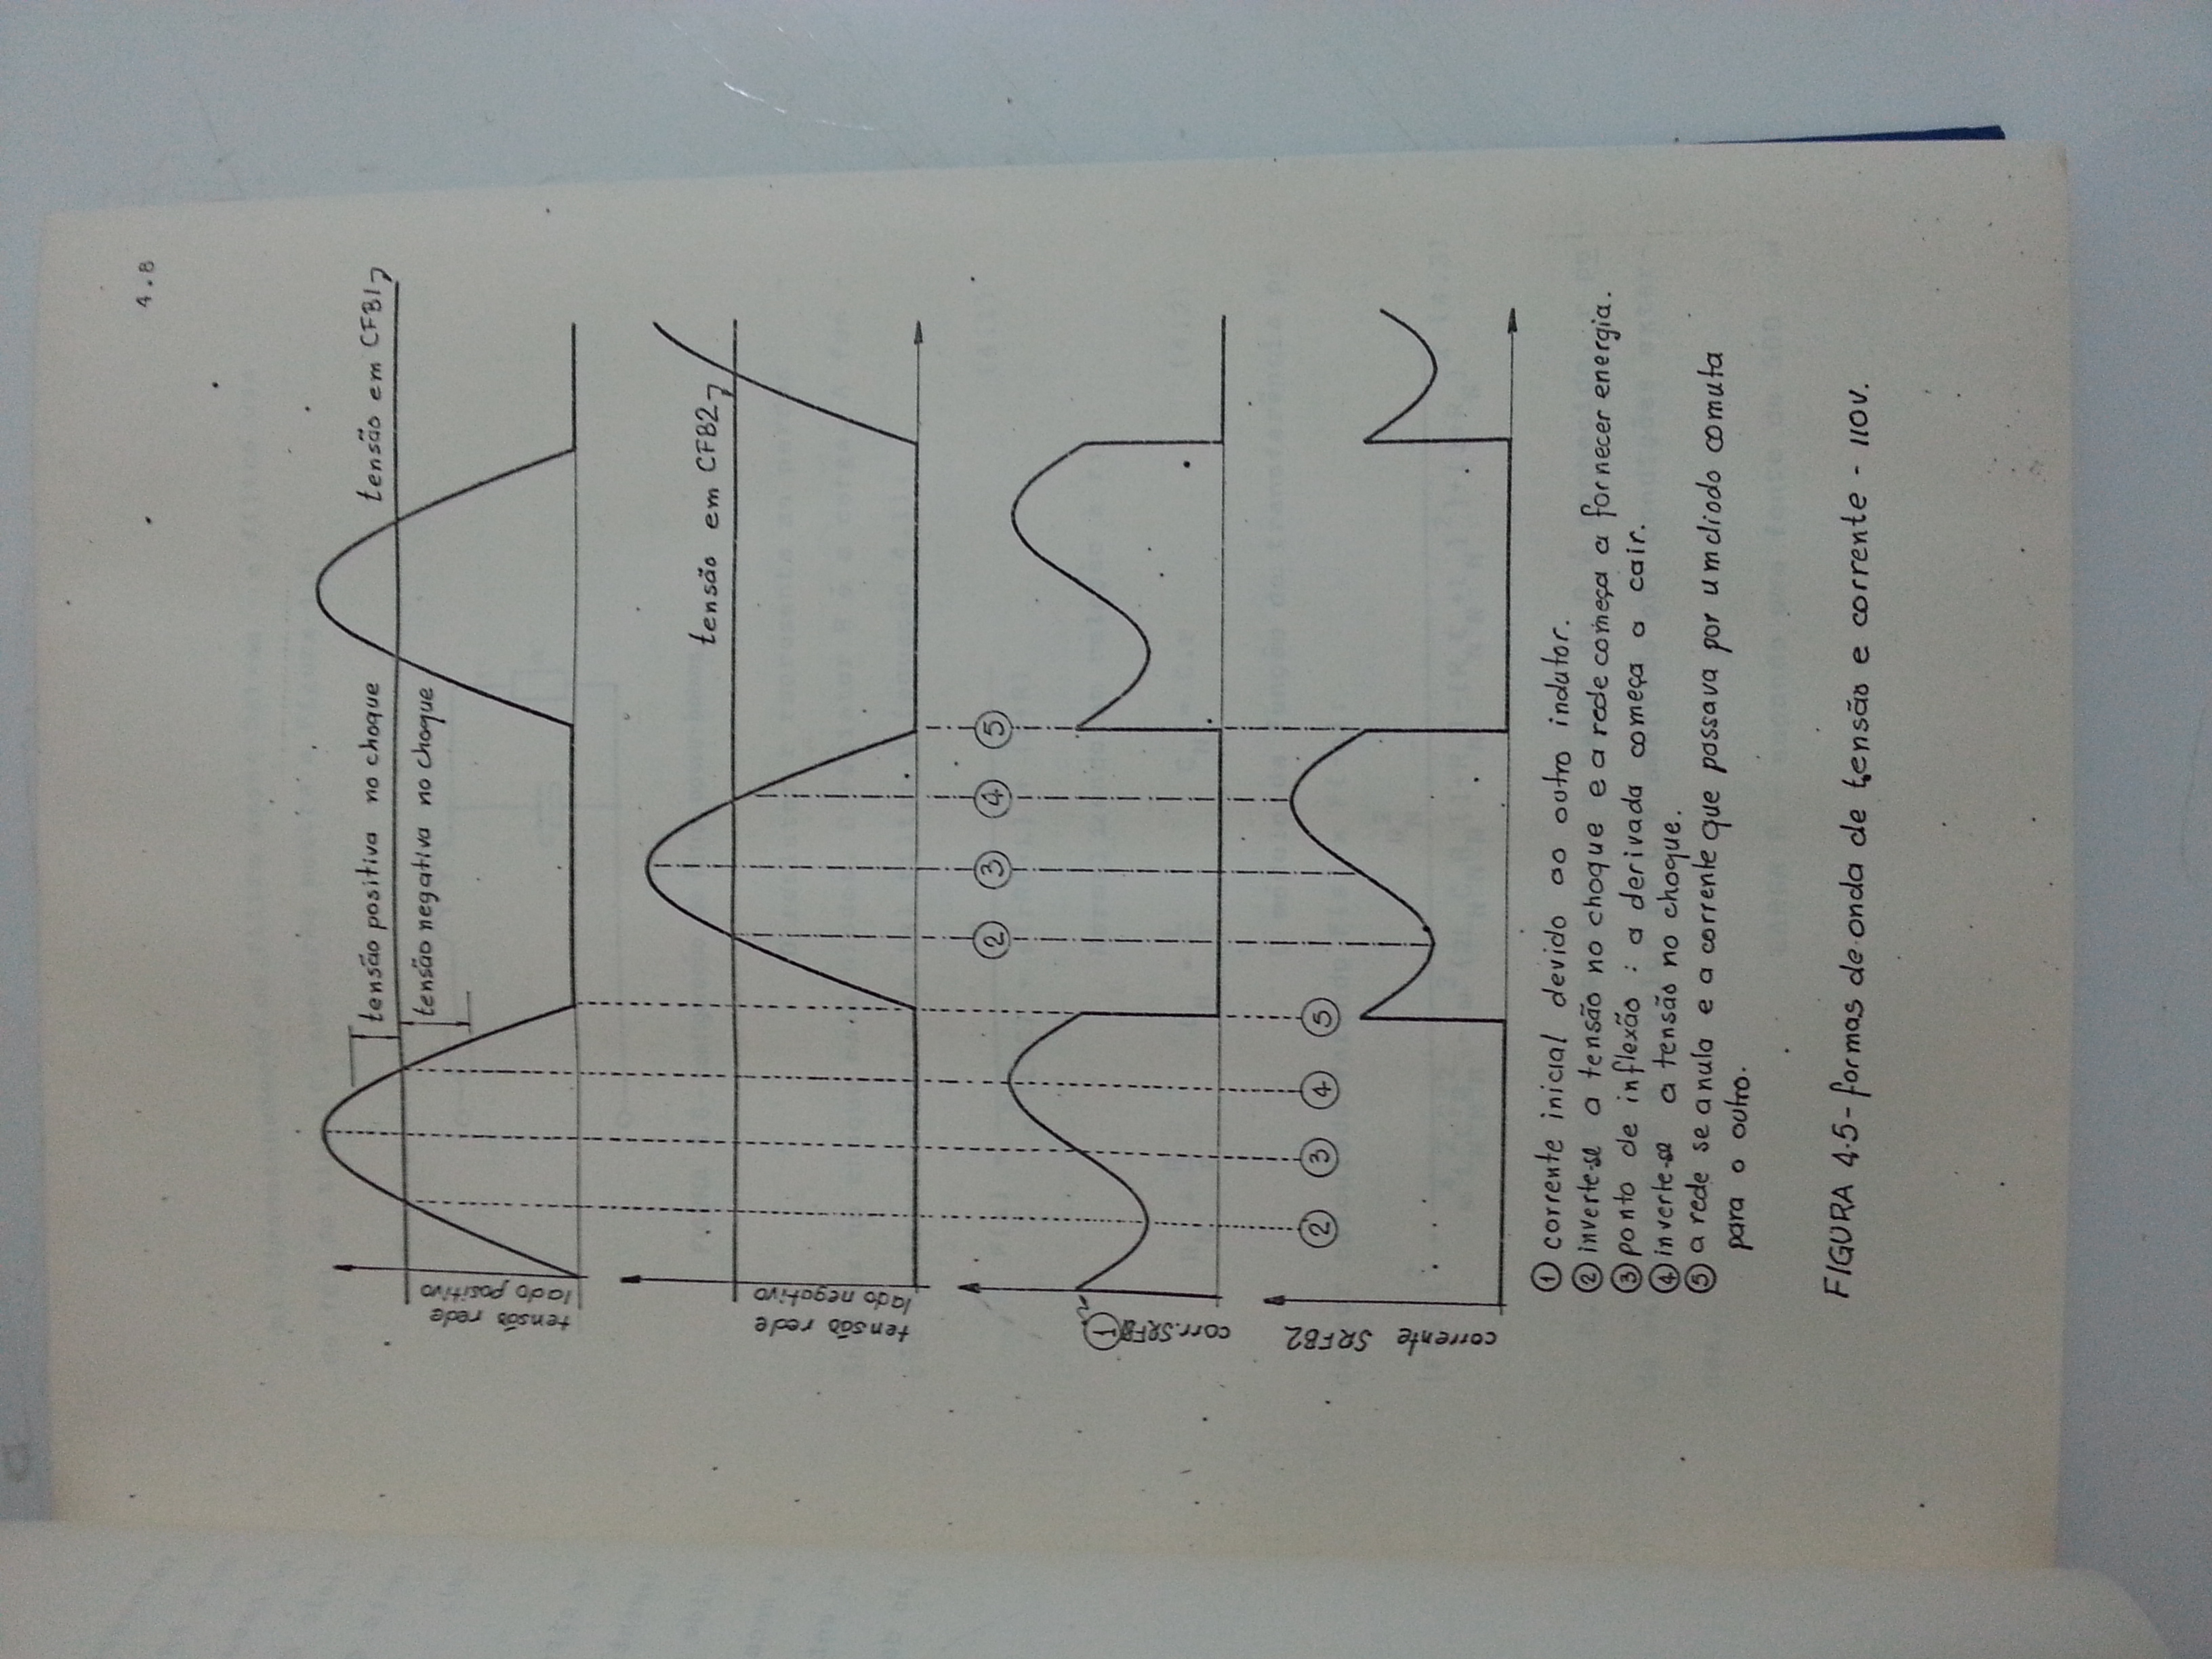 4.8
tensão em CFB1
tensão positiva no choque
tensão negativa no choque
tensão rede
lado positivo
tensão em CFB2
tensão rede
lado negativo
5
4
3
2
1
corr. SRFB1
5
4
3
2
corrente SRFB2
1 corrente inicial devido ao outro indutor.
2 inverte-se a tensão no choque e a rede começa a fornecer energia.
3 ponto de inflexão : a derivada começa a cair.
4 inverte-se a tensão no choque.
5 a rede se anula e a corrente que passava por um diodo comuta
para o outro.
FIGURA 4.5- formas de onda de tensão e corrente - 110V.